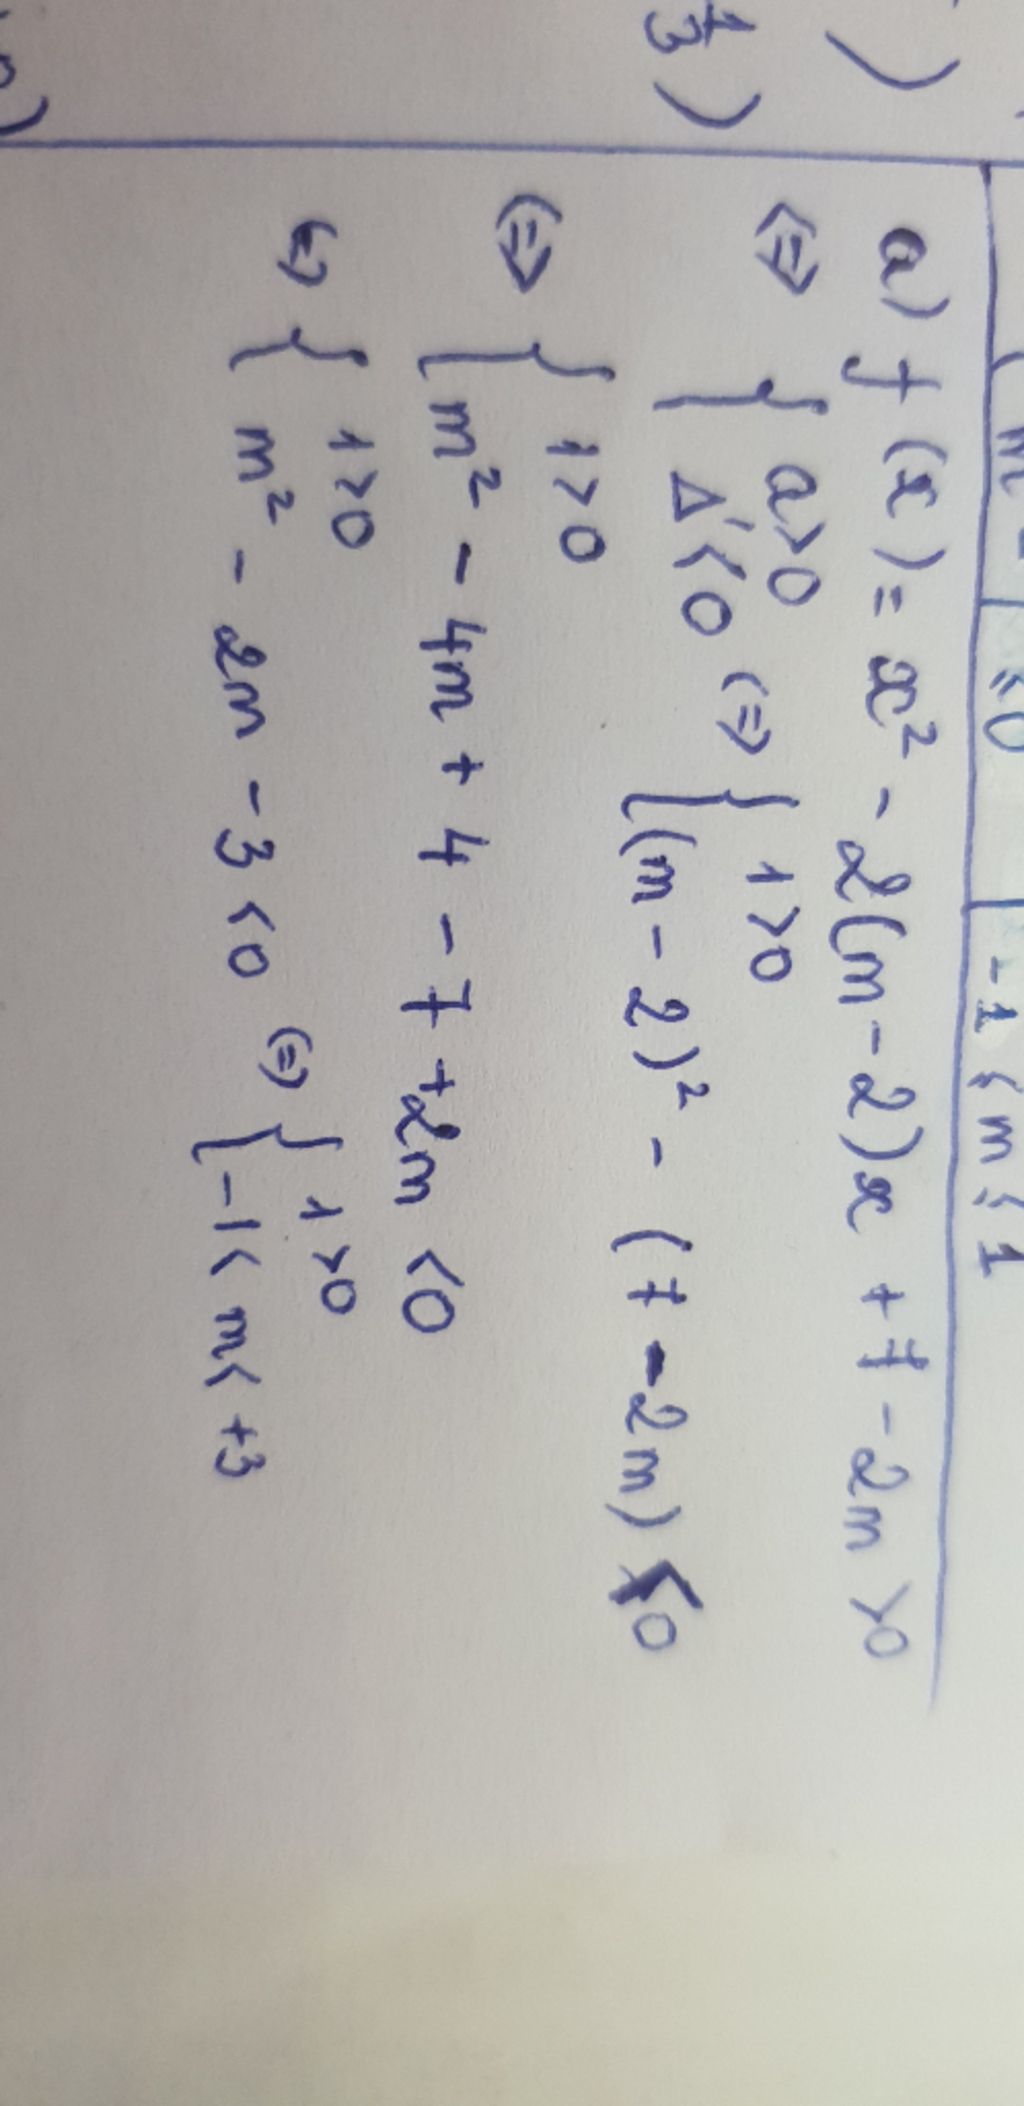 1/3 )
)
m
≤ 0
-1 ≤ m ≤ 1
a) f(x) = x² - 2(m - 2)x + 7 - 2m > 0
(=) { a>0
Δ' < 0 (=) { 1>0
(m - 2)² - (7 - 2m) < 0
(=) { 1>0
m² - 4m + 4 - 7 + 2m < 0
(=) { 1>0
m² - 2m - 3 < 0 (=) { 1>0
-1 < m < +3